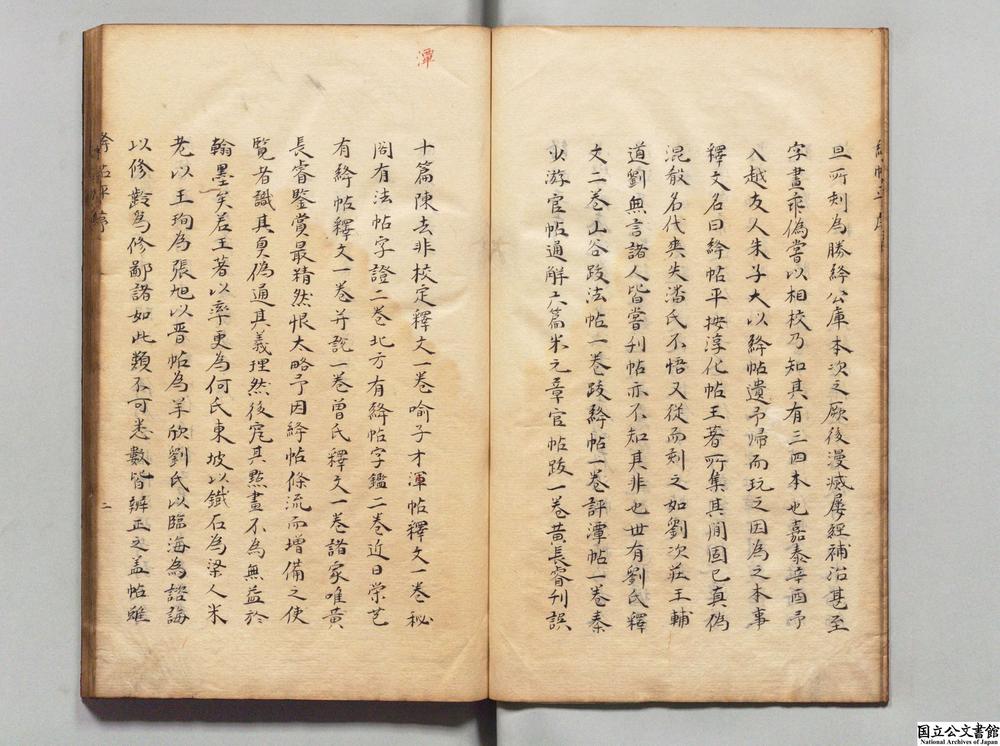 旦所刻為勝絳公庫本次之厥後漫滅屢經補治甚至
字畫乖偽嘗以相校乃知其有三四本也嘉泰辛酉予
入越友人朱子大以絳帖遺予歸而玩之因為之本事
釋文名曰絳帖平按淳化帖王著所集其間固已真偽
混殽名代爽失潘氏不悟又從而刻之如劉次莊王輔
道劉無言諸人皆嘗刊帖亦不知其非也世有劉氏釋
文二卷山谷跋法帖一卷跋絳帖一卷評潭帖一卷秦
少游官帖通解六篇米元章官帖跋一卷黃長睿刊誤
十篇陳去非校定釋文一卷喻子才渾帖釋文一卷秘
閣有法帖字證二卷北方有絳帖字鑑二卷近日榮芑
有絳帖釋文一卷并說一卷曾氏釋文一卷諸家唯黃
長睿鑒賞最精然恨太略予因絳帖條流而增備之使
覽者識其真偽通其義理然後究其點畫不為無益於
翰墨矣若王著以率更為何氏東坡以鐵石為梁人米
老以王珣為張旭以晉帖為羊欣劉氏以臨海為詔誨
以修齡為修鄙諸如此類不可悉數皆辨正之蓋帖雖
絳帖平序
二
潭
国立公文書館
National Archives of Japan